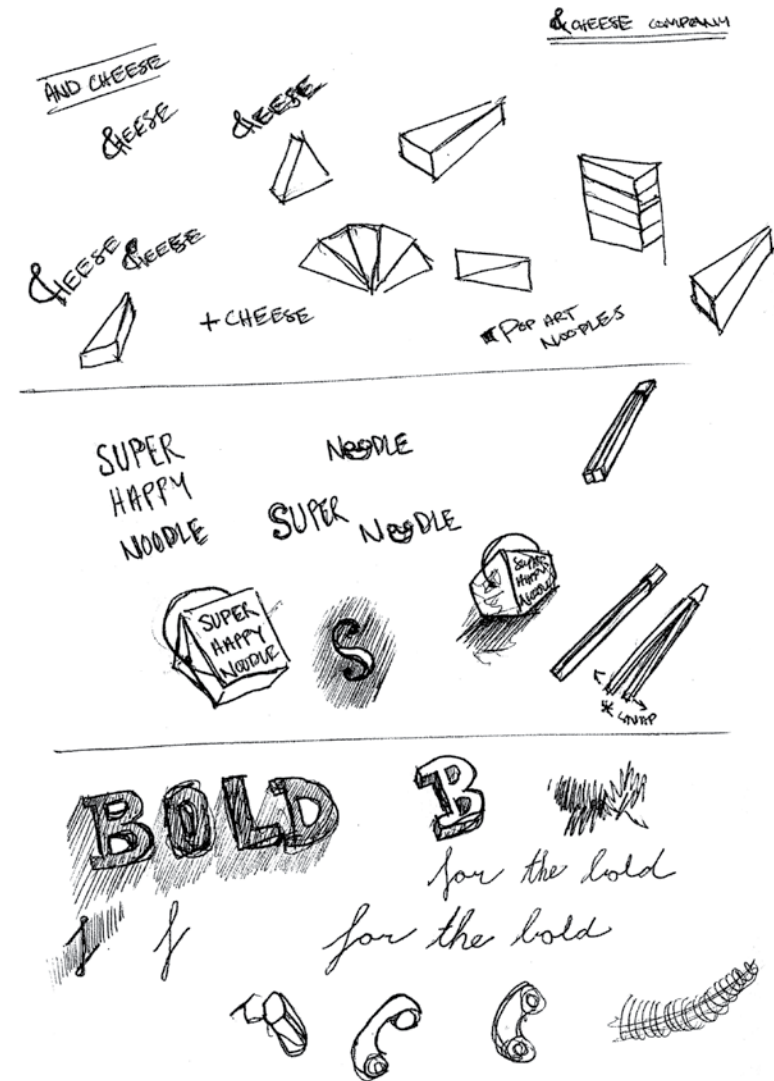 & CHEESE COMPANY
AND CHEESE
&EESE
&EESE
&HEESE
&HEESE
+ CHEESE
POP ART
NOODLES
SUPER
HAPPY
NOODLE
NOODLE
SUPER NOODLE
SUPER
HAPPY
NOODLE
SUPER
HAPPY
NOODLE
S
* SNAP
BOLD
B
for the bold
f
f
for the bold